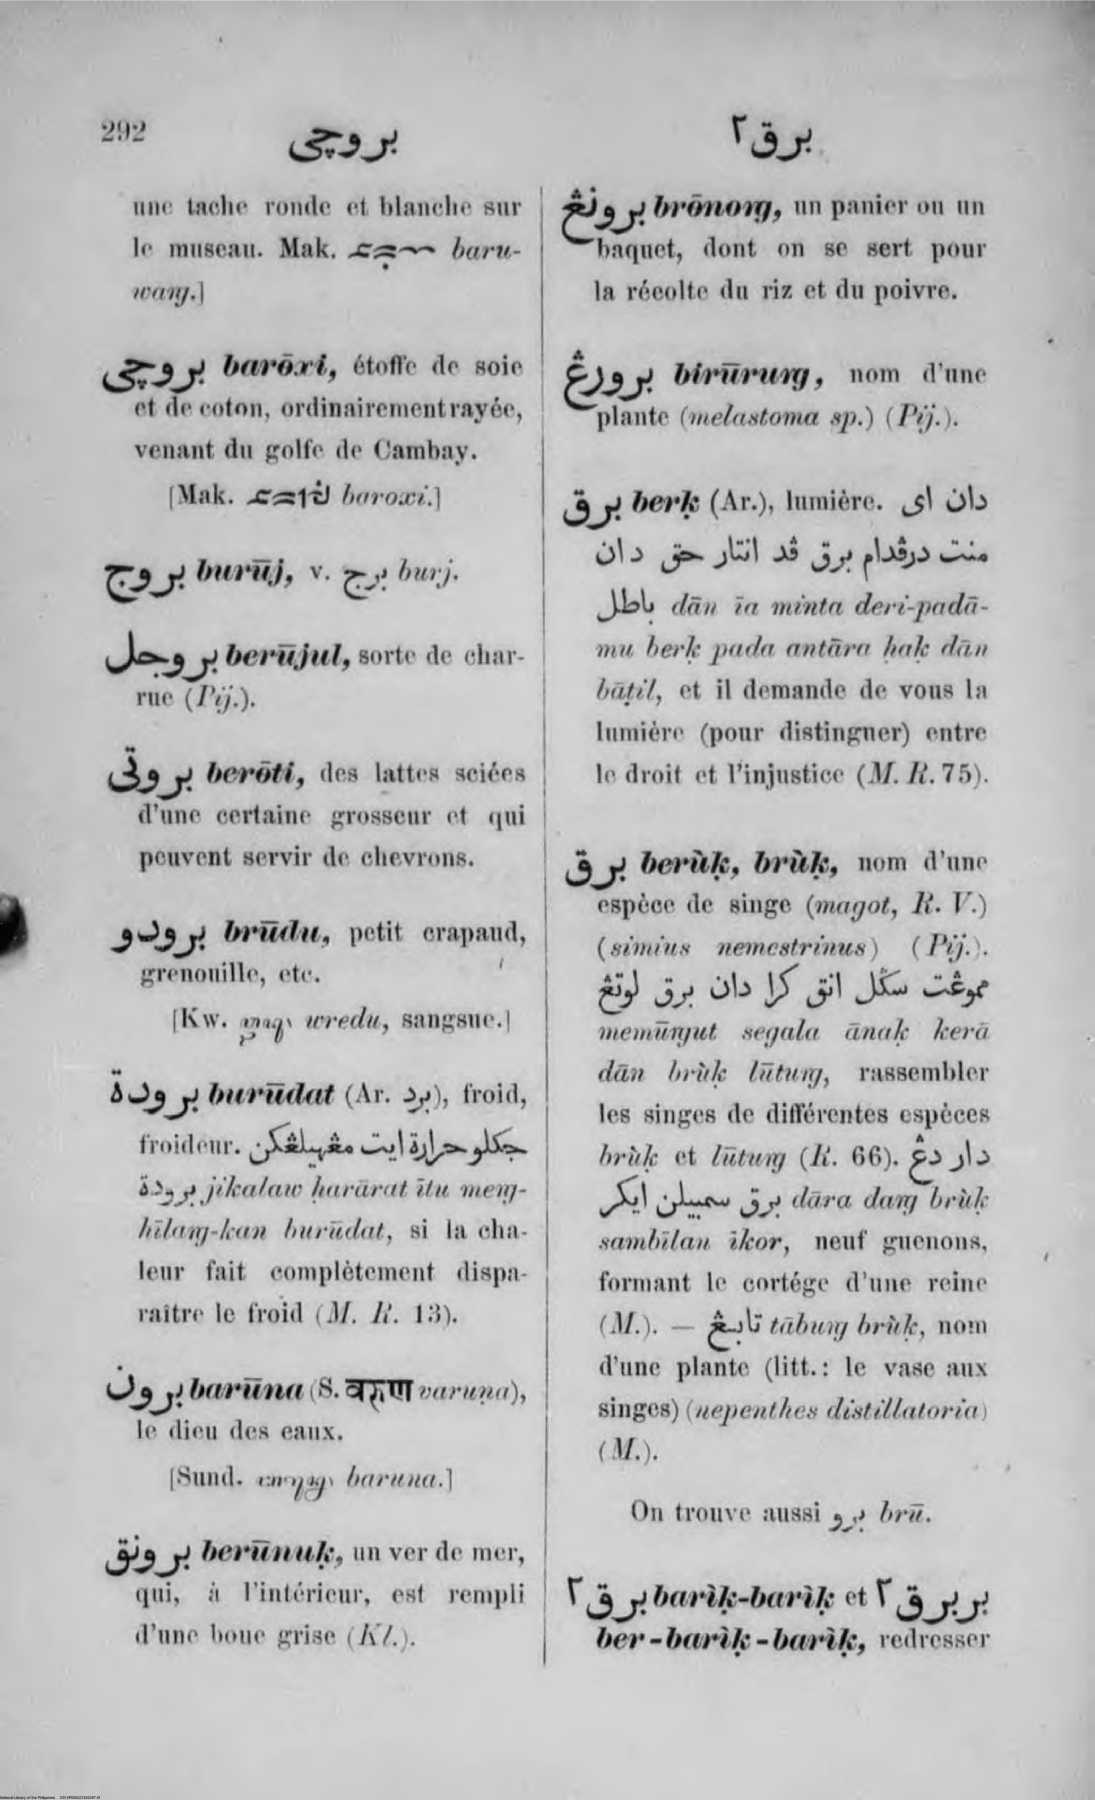 292
بروچى
برق ٢
une tache ronde et blanche sur
le museau. Mak. baru-
waŋ.]
بروچى barōxi, étoffe de soie
et de coton, ordinairement rayée,
venant du golfe de Cambay.
[Mak. baroxi.]
بروج burūj, v. برج burj.
بروجل berūjul, sorte de char-
rue (Pij.).
بروتى berōti, des lattes sciées
d'une certaine grosseur et qui
peuvent servir de chevrons.
برودو brūdu, petit crapaud,
grenouille, etc.
[Kw. wredu, sangsue.]
برودة burūdat (Ar. برد), froid,
froideur. جكلو حرارة ايت مڠهيلڠكن
برودة jikalaw ḥarārat ītu meŋ-
hīlaŋ-kan burūdat, si la cha-
leur fait complètement dispa-
raître le froid (M. R. 13).
برون barūna (S. वरुण varuṇa),
le dieu des eaux.
[Sund. baruna.]
برونق berūnuḳ, un ver de mer,
qui, à l'intérieur, est rempli
d'une boue grise (Kl.).
برونڠ brōnoŋ, un panier ou un
baquet, dont on se sert pour
la récolte du riz et du poivre.
برورڠ birūruŋ, nom d'une
plante (melastoma sp.) (Pij.).
برق berḳ (Ar.), lumière. دان اى
منت درڤدام برق ڤد انتار حق دان
باطل dān īa minta deri-padā-
mu berḳ pada antāra ḥaḳ dān
bāṭil, et il demande de vous la
lumière (pour distinguer) entre
le droit et l'injustice (M. R. 75).
برق berùḳ, brùḳ, nom d'une
espèce de singe (magot, R. V.)
(simius nemestrinus) (Pij.).
مموڠت سݢل انق كرا دان برق لوتڠ
memūŋut segala ānaḳ kerā
dān brùḳ lūtuŋ, rassembler
les singes de différentes espèces
brùḳ et lūtuŋ (R. 66). دار دڠ
برق سمبيلن ايكر dāra daŋ brùḳ
sambīlan īkor, neuf guenons,
formant le cortége d'une reine
(M.). — تابڠ tābuŋ brùḳ, nom
d'une plante (litt.: le vase aux
singes) (nepenthes distillatoria)
(M.).
On trouve aussi برو brū.
برق ٢ barìḳ-barìḳ et بربرق ٢
ber-barìḳ-barìḳ, redresser